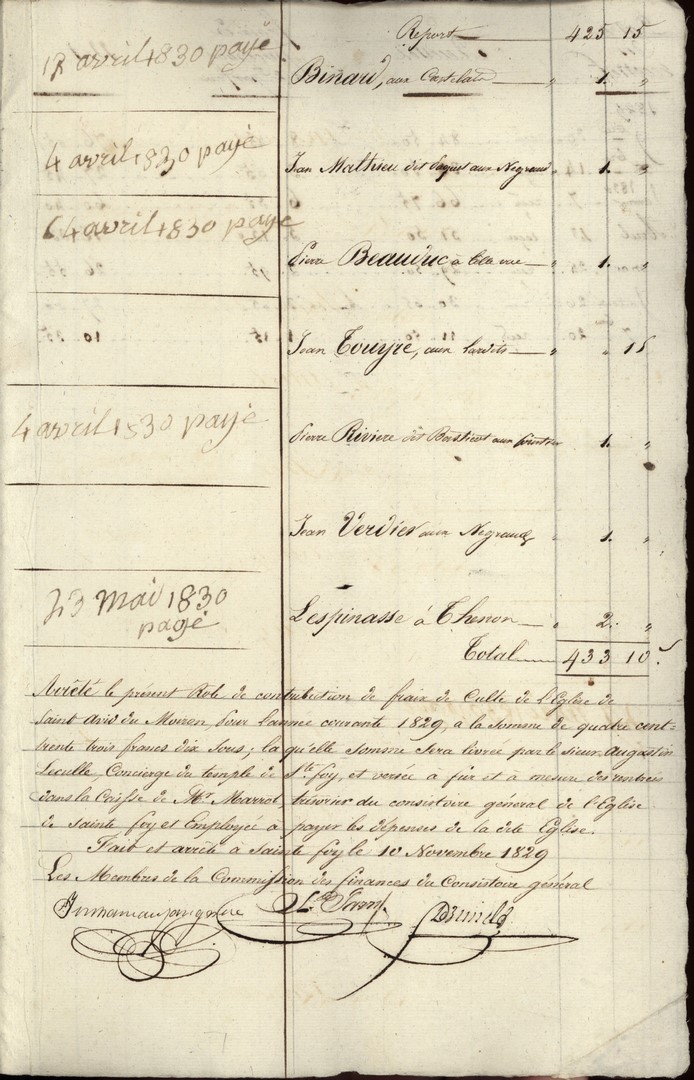 Report 425 15
12 avril 1830 payé
Binaud, aux " 1. "
4 avril 1830 payé
Jean Mathieu dit aux Negrauds " 1. "
14 avril 1830 payé
Pierre Beauduc à " 1. "
Jean Touyre, aux " " 15
4 avril 1830 payé
Pierre Riviere dit aux 1. "
Jean Verdier aux Negrauds 1. "
23 mai 1830
payé
Lespinasse à Thenon " 2. "
Total 433 10 s
Arrêté le présent Role de contribution de fraix de Culte de l'Eglise de
Saint Avid du Moiron, pour l'année courante 1829, à la Somme de quatre cent
trente trois francs dix Sous; la qu'elle Somme Sera livrée par le sieur Augustin
Leculle, Concierge du temple de Ste foy, et versée à fur et à mesure des rentrées
dans la Caisse de Mr. Marrot, trésorier du consistoire général de l'Eglise
de Sainte foy et Employé à payer les dépenses de la dite Eglise.
Fait et arrêté à Sainte foy le 10 Novembre 1829
Les Membres de la Commission des finances du Consistoire général